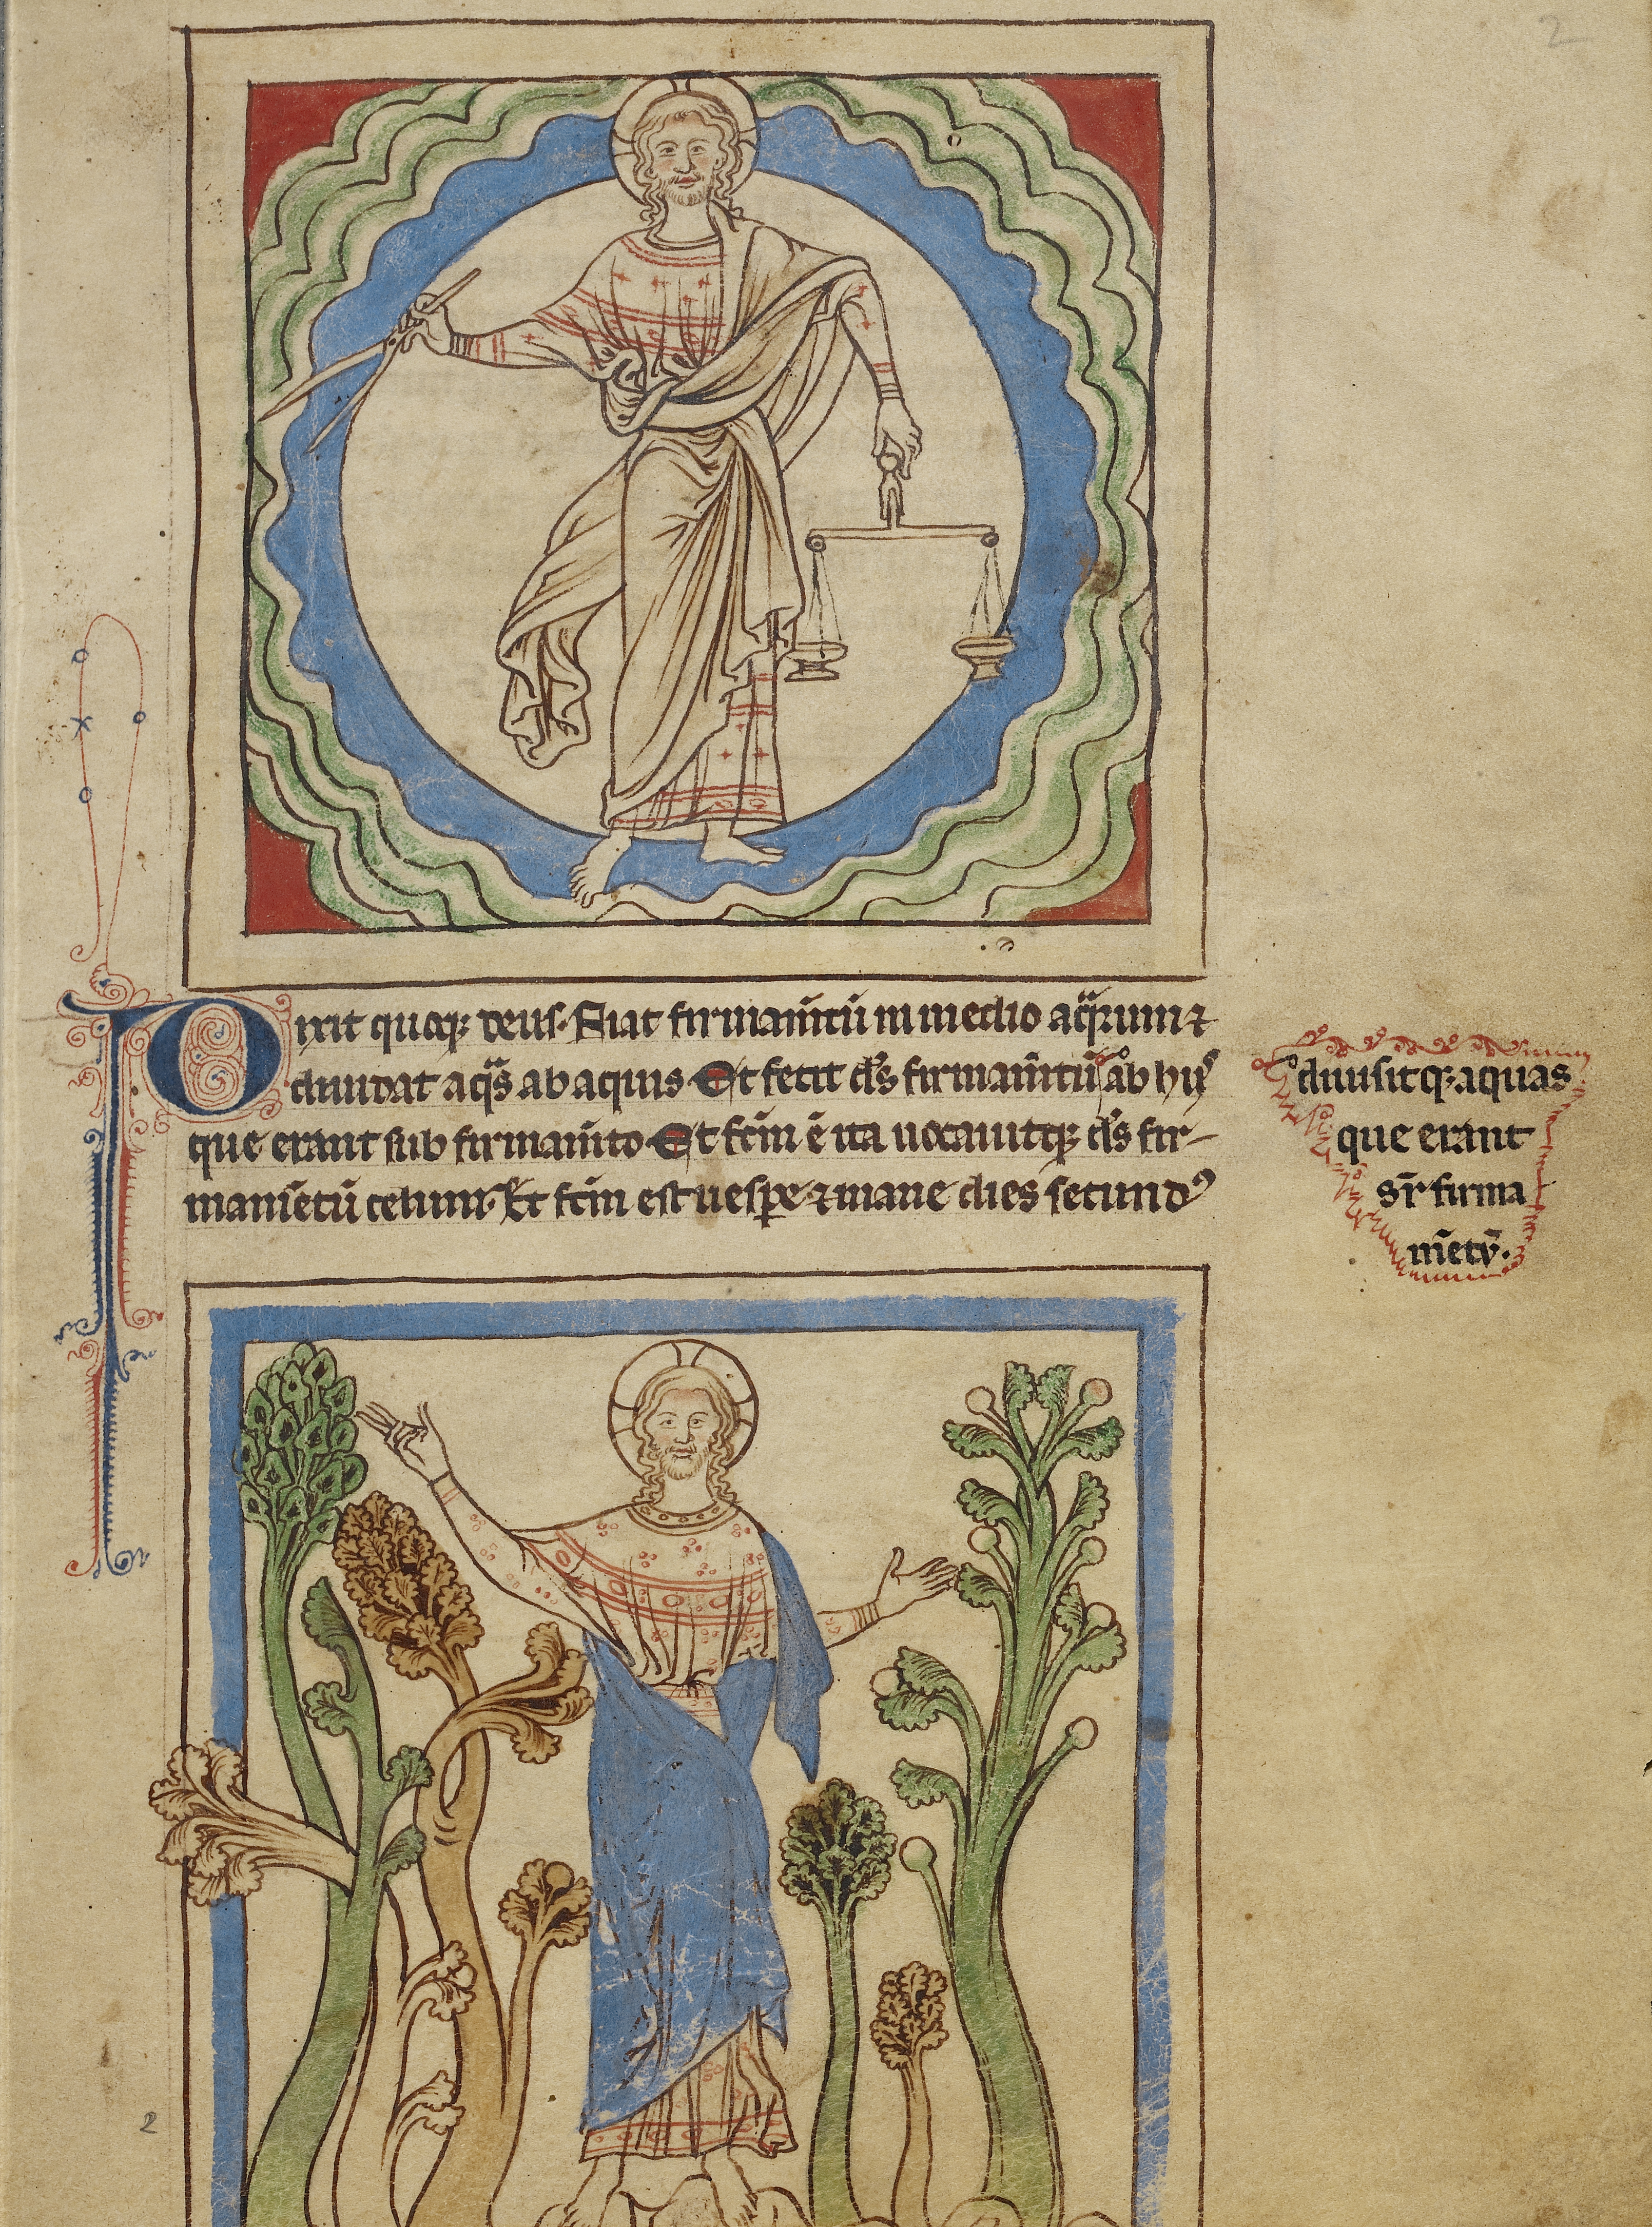 Dixit quoq; deus. Fiat firmam̄tū in medio aq̈rum ⁊
diuidat aq̈s ab aquis Et fecit d̄s firmam̄tū ab hijs
que erant sub firmam̄to Et fc̄m ē ita uocauitq; d̄s fir-
mam̄etū celum. Et fc̄m est uespe ⁊ mane dies secundꝰ
diuisitq; aquas
que erant
sr̄ firma
m̄etū.
2
2